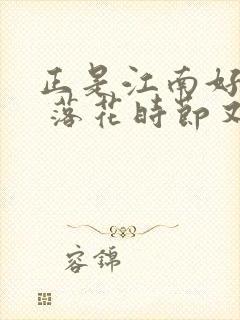 正是江南好
落花時節又
容錦